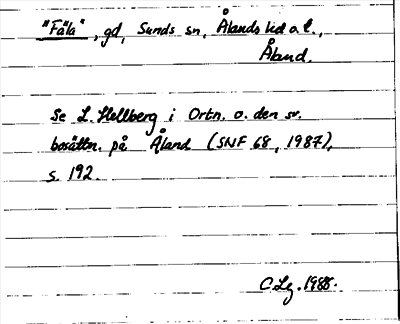 "Fäla", gd, Sunds sn, Ålands lid o.l.,
Åland.
Se L. Hellberg i Ortn. o. den sv.
bosättn. på Åland (SNF 68, 1987),
s. 192.
C.Lg. 1988.